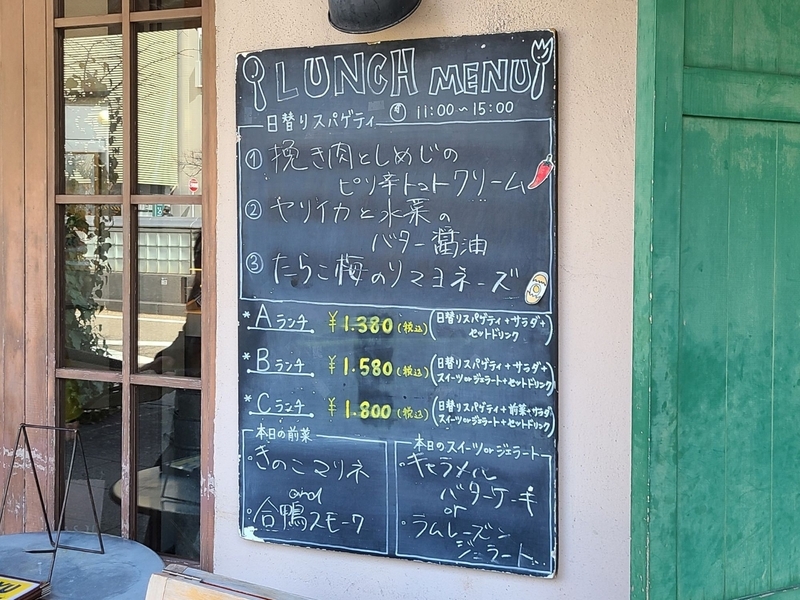 LUNCH MENU
11:00~15:00
日替りスパゲティ
① 挽き肉としめじの
ピリ辛トマトクリーム
② ヤリイカと水菜の
バター醤油
③ たらこ梅のりマヨネーズ
* Aランチ ¥1.380(税込)(日替りスパゲティ+サラダ+
セットドリンク)
* Bランチ ¥1.580(税込)(日替りスパゲティ+サラダ+
スイーツorジェラート+セットドリンク)
* Cランチ ¥1.800(税込)(日替りスパゲティ+前菜+サラダ
スイーツorジェラート+セットドリンク)
本日の前菜
・きのこマリネ
and
・合鴨スモーク
本日のスイーツorジェラート
・キャラメル
バターケーキ
or
・ラムレーズン
ジェラート